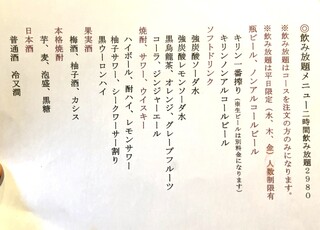 ◎飲み放題メニュー二時間飲み放題2980
※飲み放題はコースを注文の方のみになります。
※飲み放題は平日限定（水、木、金）人数制限有
瓶ビール、ノンアルコールビール
キリン一番搾り（※生ビールは別料金になります）
キリンノンアルコールビール
ソフトドリンク
強炭酸ソーダ水
強炭酸レモンソーダ水
黒烏龍茶、オレンジ、グレープフルーツ
コーラ、ジンジャーエール
焼酎、サワー、ウイスキー
ハイボール、酎ハイ、レモンサワー
柚子サワー、シークワーサー割り
黒ウーロンハイ
果実酒
梅酒、柚子酒、カシス
本格焼酎
芋、麦、泡盛、黒糖
日本酒
普通酒 冷又燗